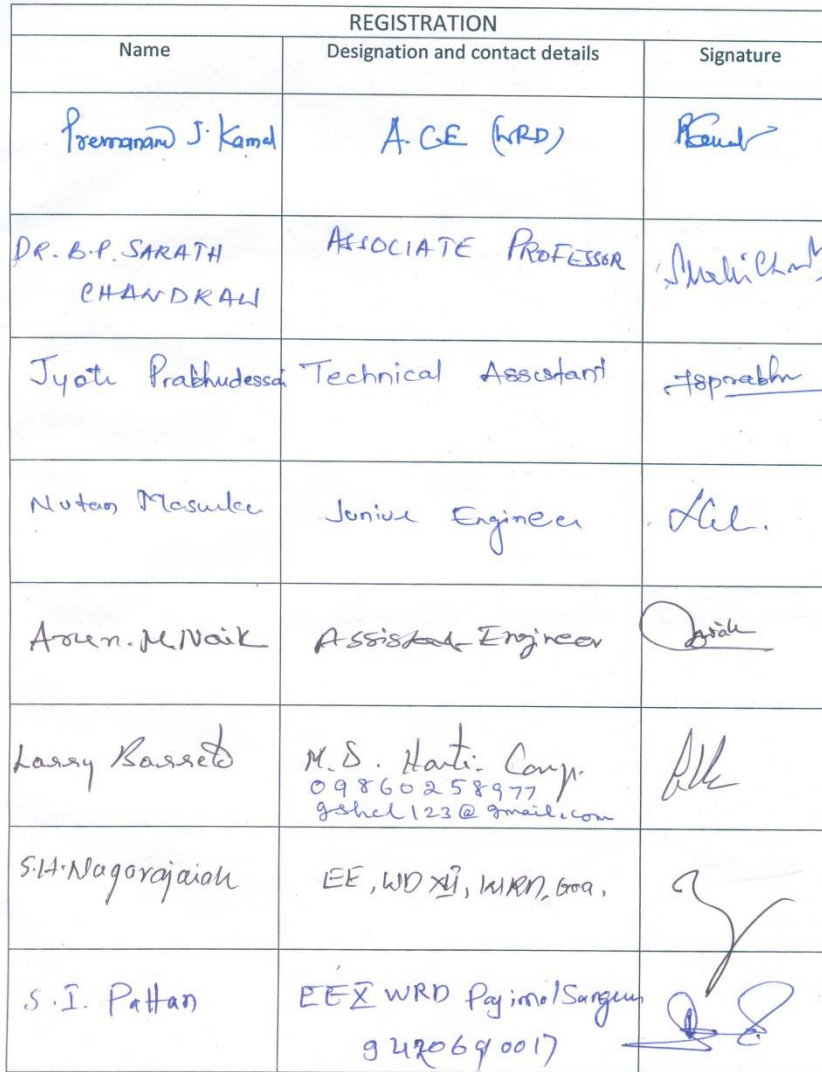 REGISTRATION
Name Designation and contact details Signature
Premanand J. Kamal A.CE (WRD)
DR. B.P. SARATH ASSOCIATE PROFESSOR
CHANDRAN
Jyoti Prabhudessai Technical Assistant
Nutan Junior Engineer
Arun. M. Naik Assistant Engineer
Larry Barreto M.D. Horti. Corp.
09860258977
gshcl123@gmail.com
S.H. Nagarajaiah EE, WD XII, WRD, Goa,
S.I. Pattan EE X WRD Sanguem
9420690017